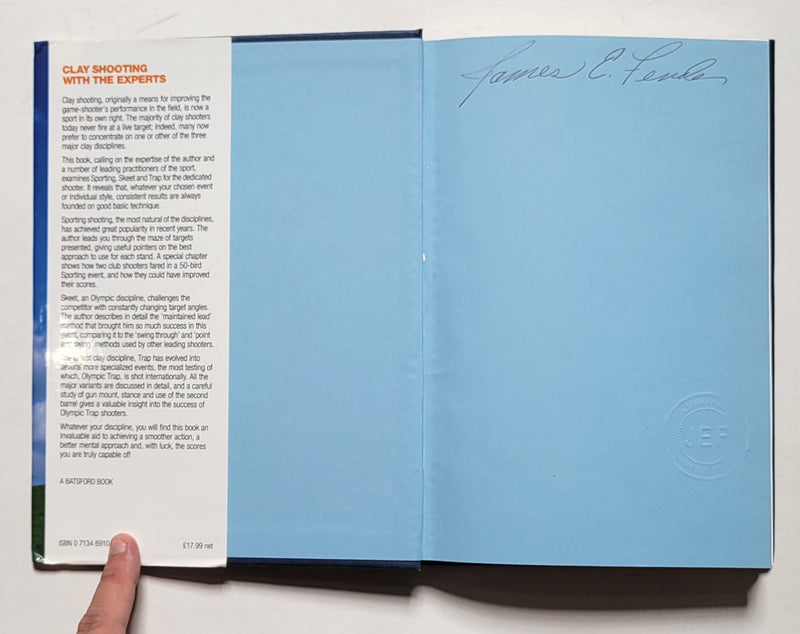 CLAY SHOOTING
WITH THE EXPERTS
Clay shooting, originally a means for improving the
game-shooter's performance in the field, is now a
sport in its own right. The majority of clay shooters
today never fire at a live target; indeed, many now
prefer to concentrate on one or other of the three
major clay disciplines.
This book, calling on the expertise of the author and
a number of leading practitioners of the sport,
examines Sporting, Skeet and Trap for the dedicated
shooter. It reveals that, whatever your chosen event
or individual style, consistent results are always
founded on good basic technique.
Sporting shooting, the most natural of the disciplines,
has achieved great popularity in recent years. The
author leads you through the maze of targets
presented, giving useful pointers on the best
approach to use for each stand. A special chapter
shows how two club shooters fared in a 50-bird
Sporting event, and how they could have improved
their scores.
Skeet, an Olympic discipline, challenges the
competitor with constantly changing target angles.
The author describes in detail the 'maintained lead'
method that brought him so much success in this
event, comparing it to the 'swing through' and 'point
and swing' methods used by other leading shooters.
The oldest clay discipline, Trap has evolved into
several more specialized events, the most testing of
which, Olympic Trap, is shot internationally. All the
major variants are discussed in detail, and a careful
study of gun mount, stance and use of the second
barrel gives a valuable insight into the success of
Olympic Trap shooters.
Whatever your discipline, you will find this book an
invaluable aid to achieving a smoother action, a
better mental approach and, with luck, the scores
you are truly capable of!
A BATSFORD BOOK
ISBN 0 7134 6910
£17.99 net
James E.
JEF